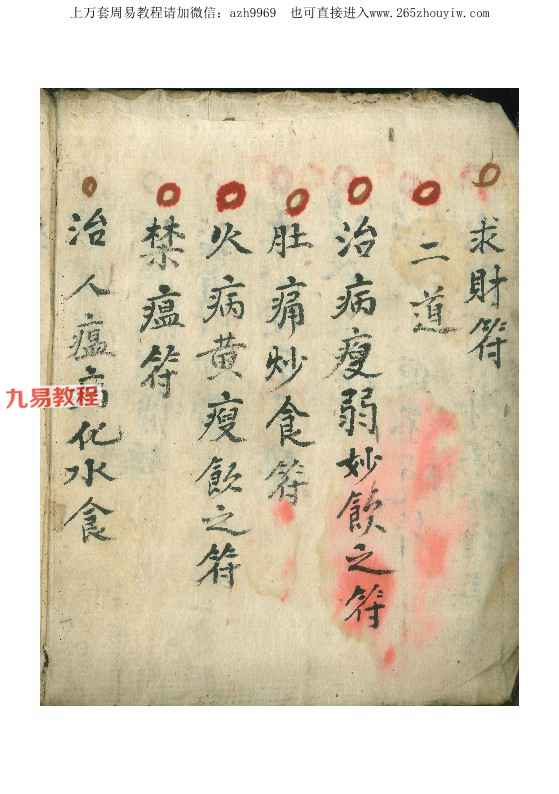 上万套周易教程请加微信：azh9969 也可直接进入www.265zhouyiw.com
求財符
二道
治病瘦弱妙飲之符
肚痛炒食符
火病黄瘦飲之符
禁瘟符
治人瘟病化水食
九易教程